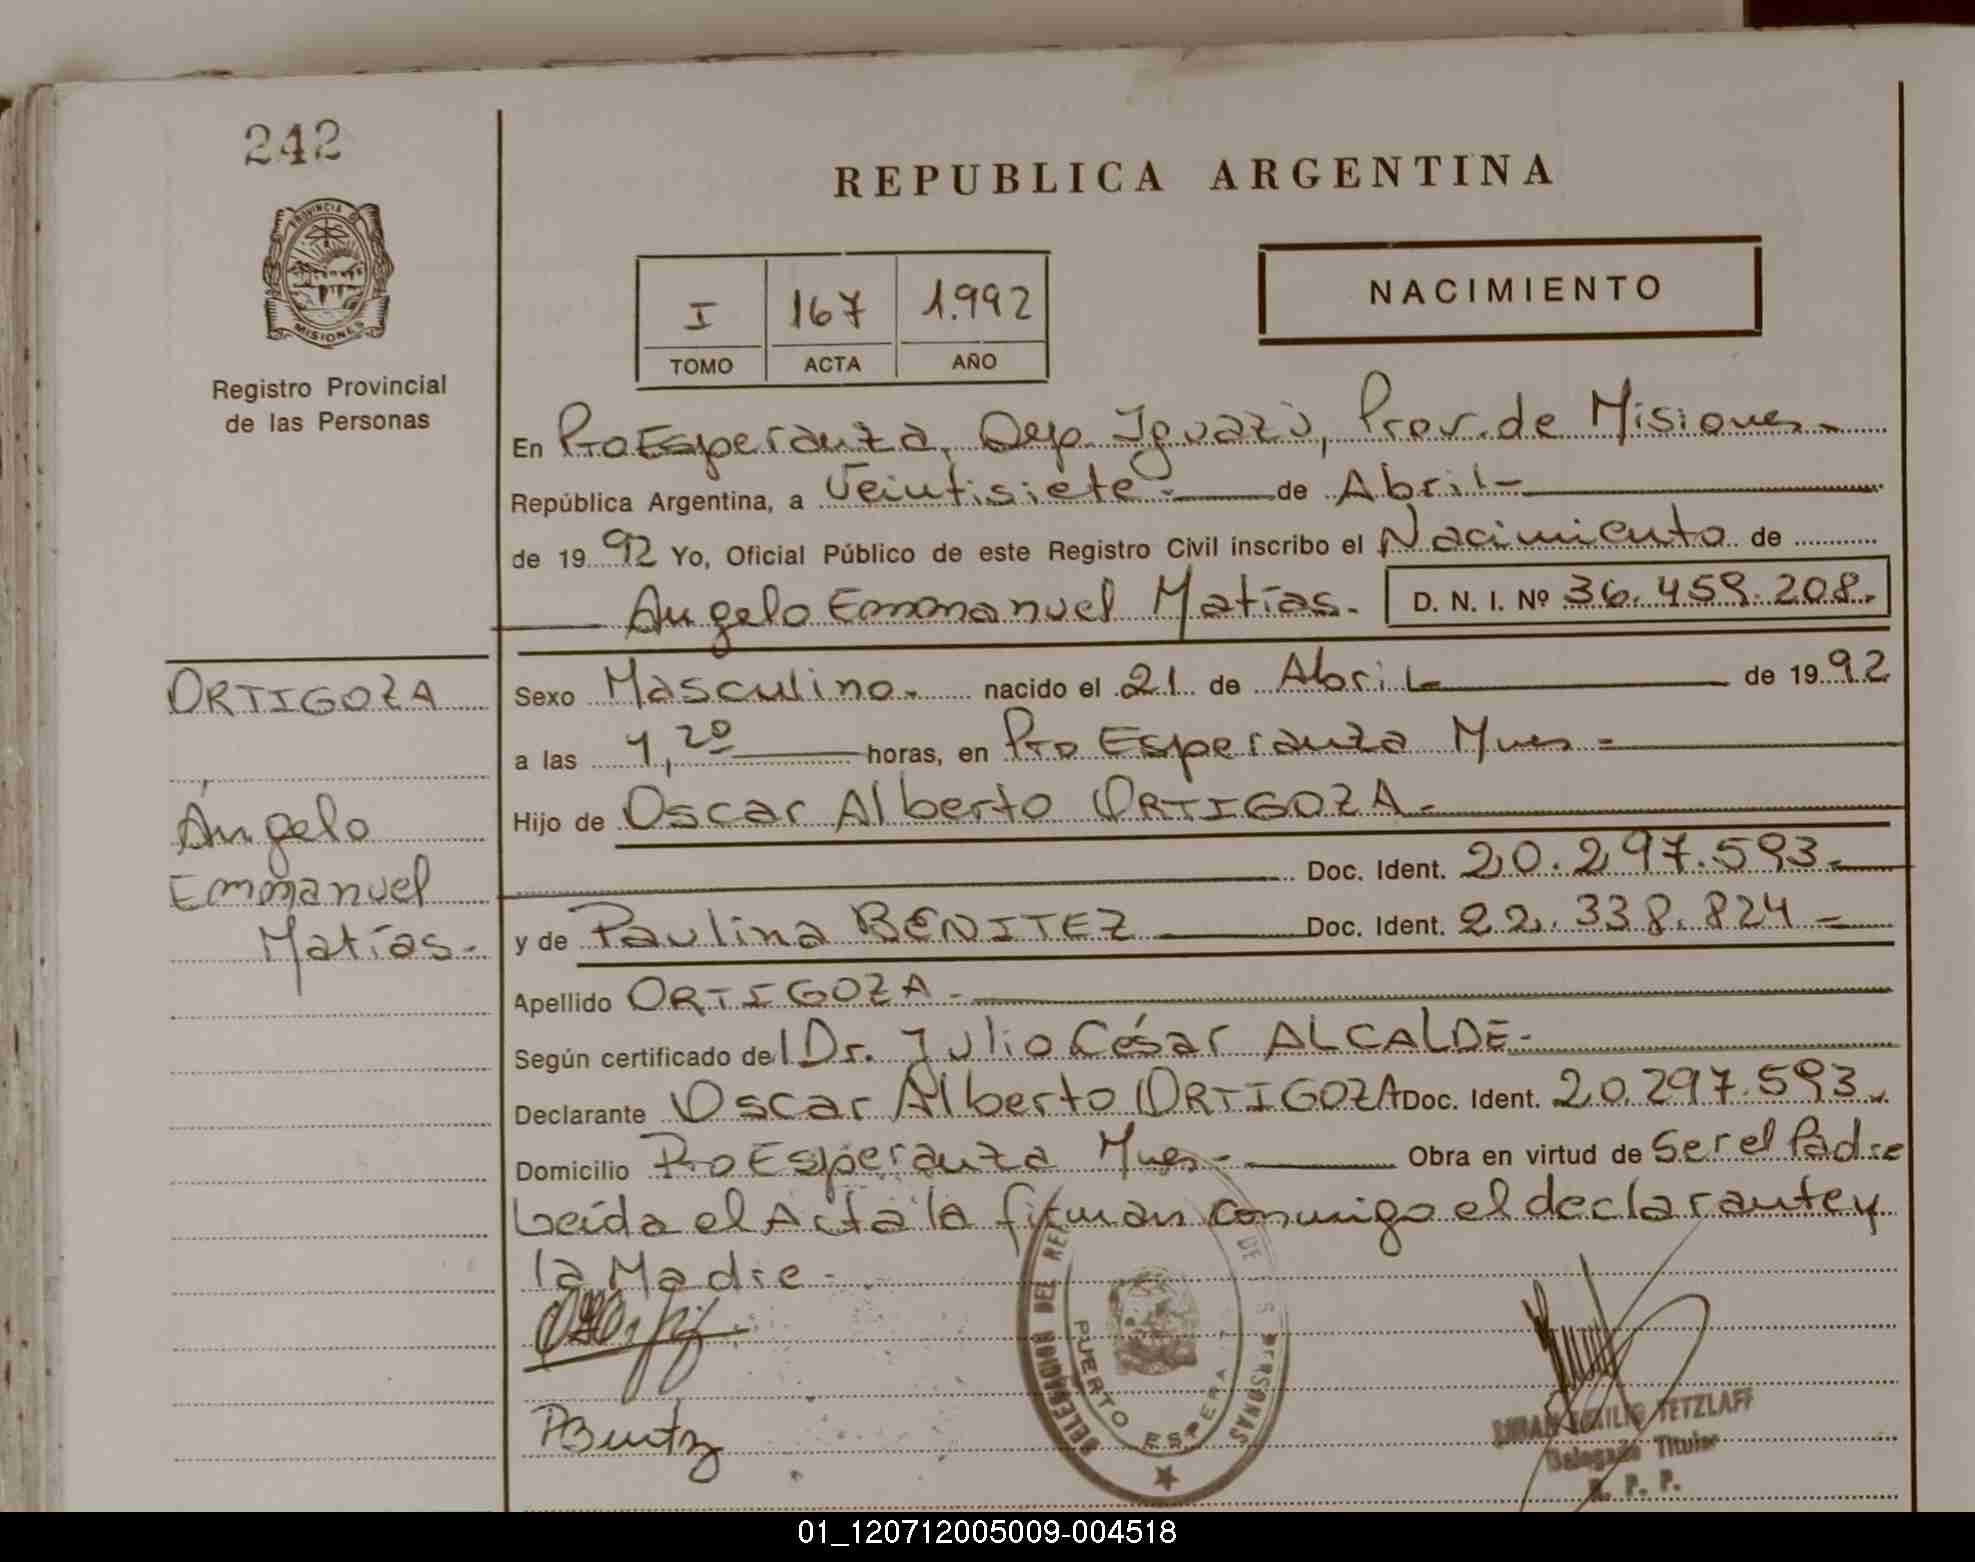 242
REPUBLICA ARGENTINA
PROVINCIA DE
MISIONES
Registro Provincial
de las Personas
I 167 1.992
TOMO ACTA AÑO
NACIMIENTO
En Pto Esperanza, Dep. Iguazú, Prov. de Misiones.-
República Argentina, a Veintisiete.- de Abril-
de 19 92 Yo, Oficial Público de este Registro Civil inscribo el Nacimiento de
Angelo Emmanuel Matías. D. N. I. Nº 36.459.208.
ORTIGOZA
Sexo Masculino.- nacido el 21 de Abril- de 19 92
a las 4,20 horas, en Pto Esperanza Mnes =
Hijo de Oscar Alberto ORTIGOZA.-
Angelo
Emmanuel
Matías.-
Doc. Ident. 20.297.593.-
y de Paulina BENITEZ Doc. Ident. 22.338.824 =
Apellido ORTIGOZA -
Según certificado del Dr. Julio César ALCALDE-
Declarante Oscar Alberto ORTIGOZA Doc. Ident. 20.297.593.
Domicilio Pto Esperanza Mnes- Obra en virtud de Ser el Padre
Leída el Acta la firman conmigo el declarante y
la Madre-
PBentz
DELEGACION DEL REG DE PERSONAS
PUERTO ESPERA
TETZLAFF
Delegado Titular
R. P. P.
01_120712005009-004518